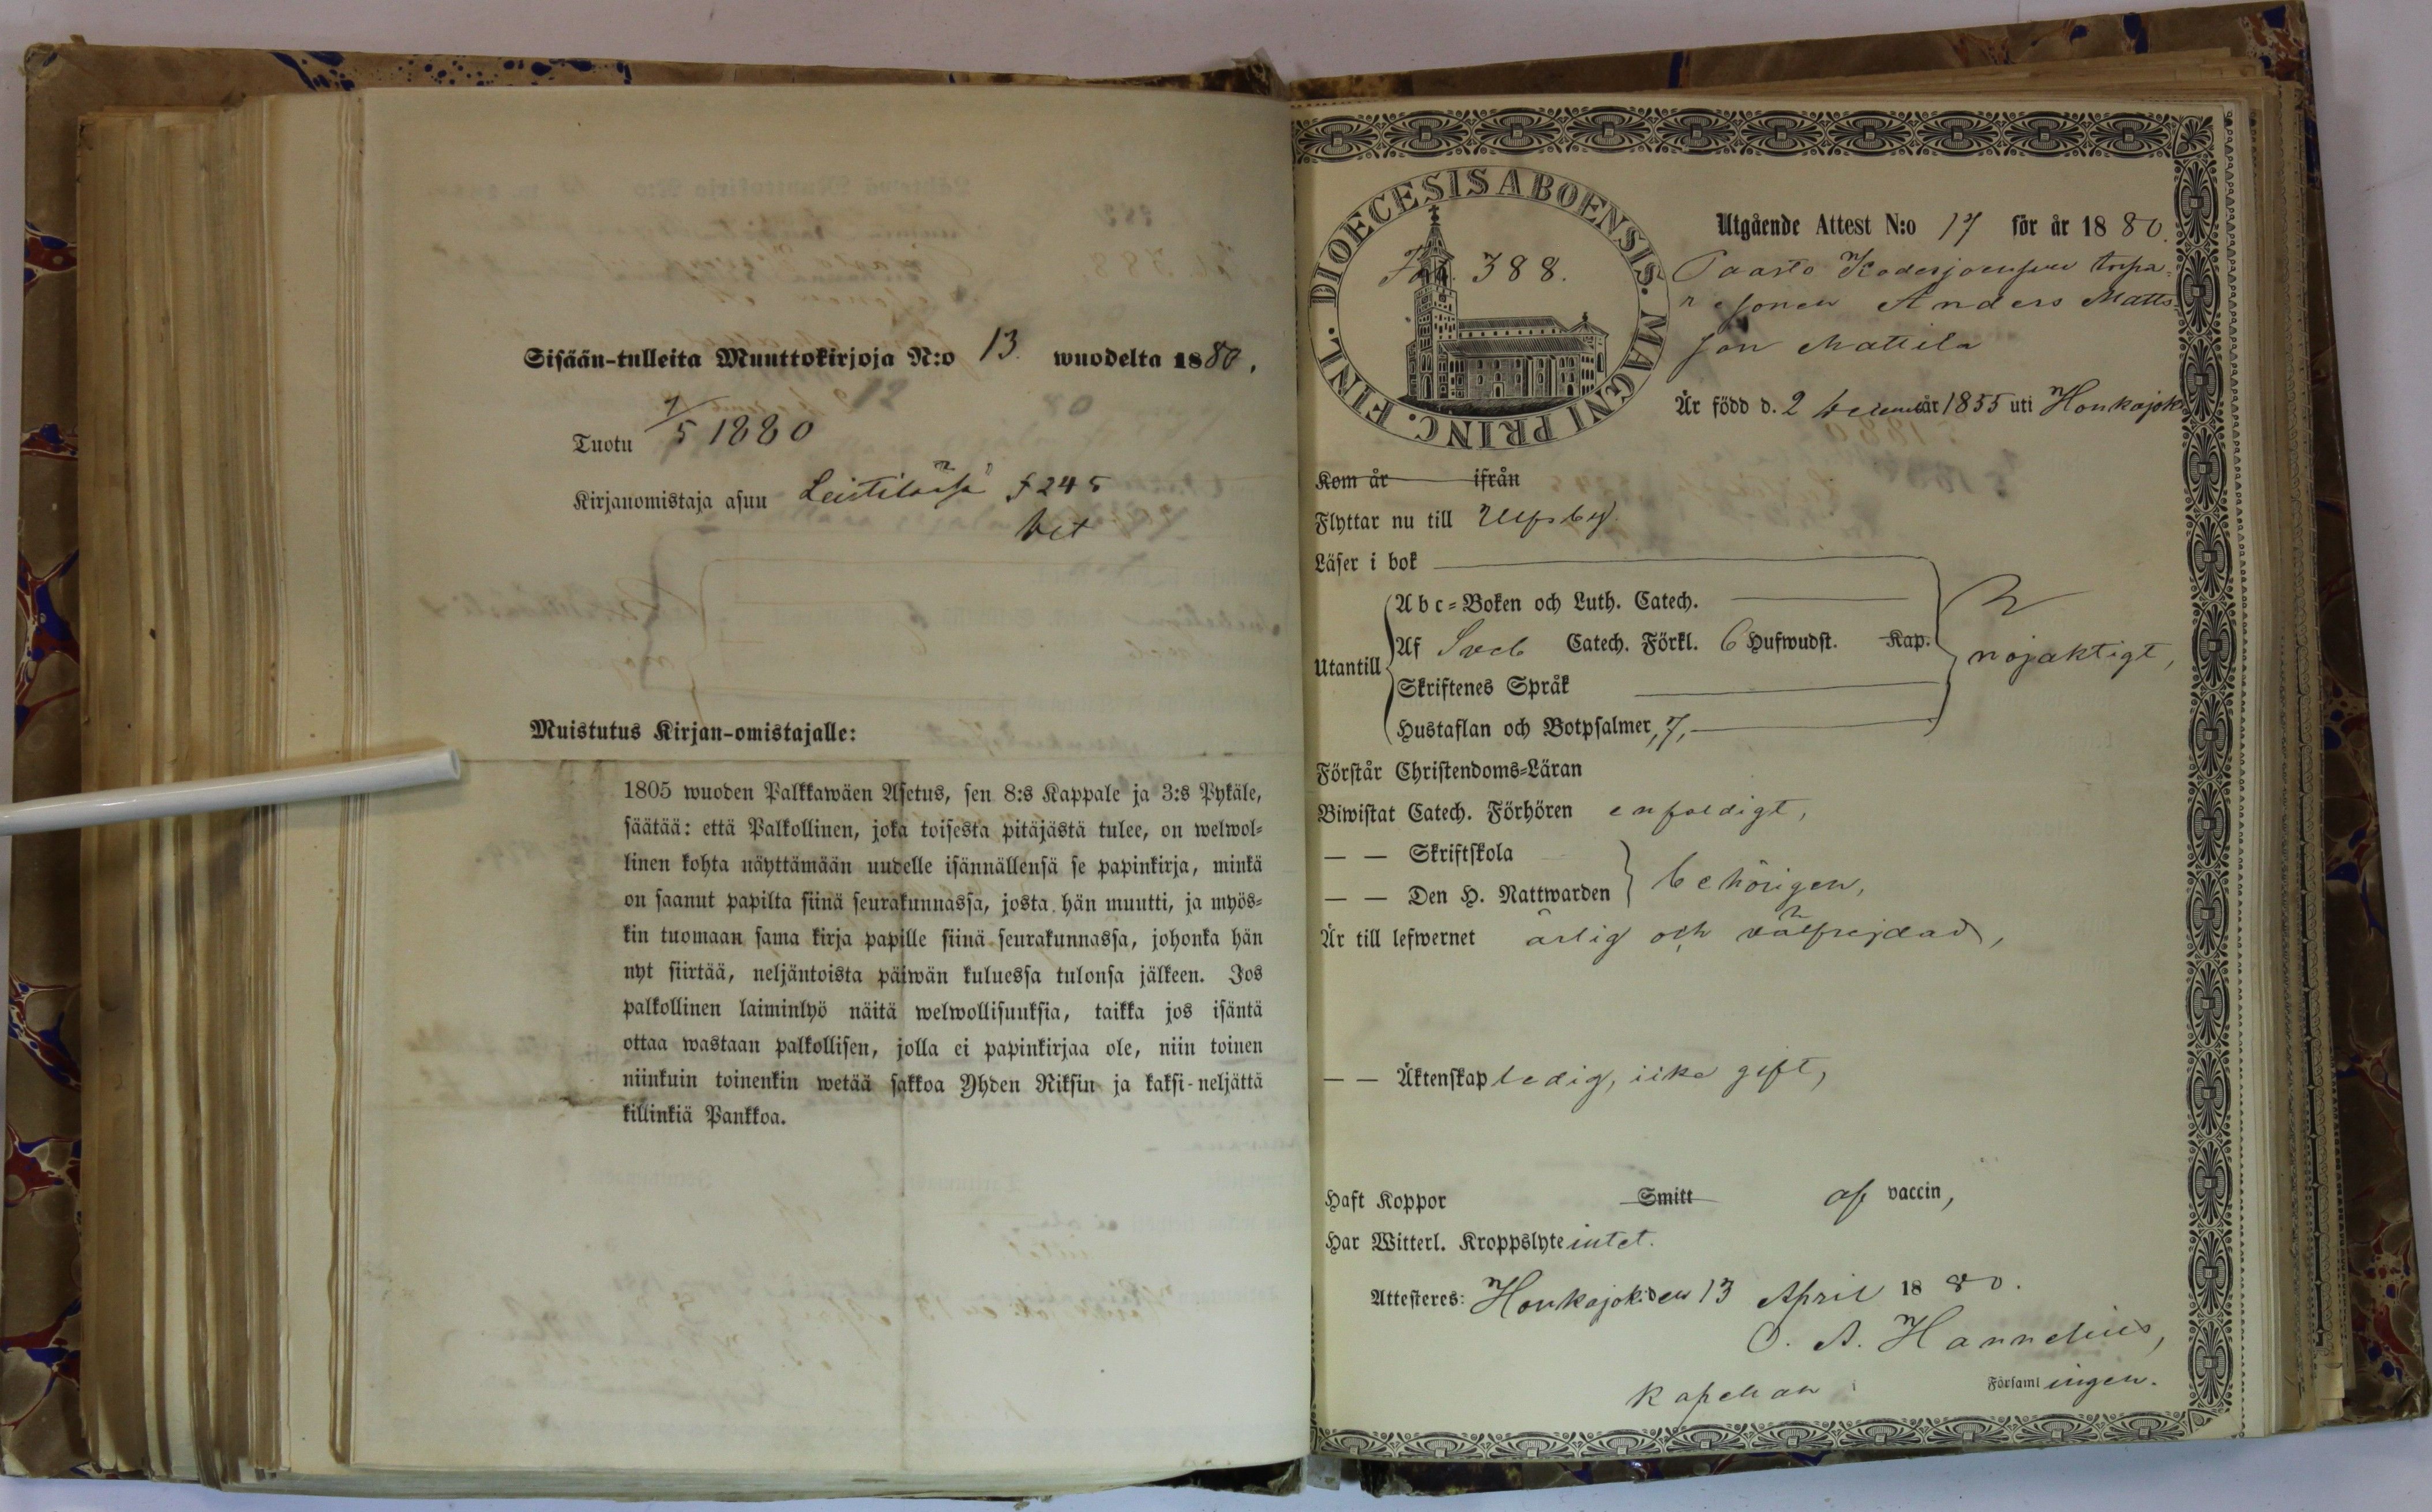 Sisään-tulleita Muuttokirjoja N:o 13. wuodelta 1880.
Tuotu 7/5 1880
Kirjanomistaja asuu Leistilässä f 245
bet
Muistutus Kirjan-omistajalle:
1805 wuoden Palkkawäen Asetus, sen 8:s Kappale ja 3:s Pykäle,
säätää: että Palkollinen, joka toisesta pitäjästä tulee, on welwol=
linen kohta näyttämään uudelle isännällensä se papinkirja, minkä
on saanut papilta siinä seurakunnassa, josta hän muutti, ja myös=
kin tuomaan sama kirja papille siinä seurakunnassa, johonka hän
nyt siirtää, neljäntoista päiwän kuluessa tulonsa jälkeen. Jos
palkollinen laiminlyö näitä welwollisuuksia, taikka jos isäntä
ottaa wastaan palkollisen, jolla ei papinkirjaa ole, niin toinen
niinkuin toinenkin wetää sakkoa Yhden Riksin ja kaksi-neljättä
killinkiä Pankkoa.
DIOECESIS ABOENSIS. MAGNI PRINC. FINL.
388.
Utgående Attest N:o 17 för år 1880.
Paasto torpa=
resonen Anders Matts=
son Mattila
Är född d. 2 år 1855 uti Honkajoki
Kom år ifrån
Flyttar nu till Ulfsby.
Läser i bok
Abc=Boken och Luth. Catech.
Utantill Af Sveb Catech. Förkl. 6 Hufwudst. Kap. nöjaktigt,
Skriftenes Språk
Hustaflan och Botpsalmer, 7,
Förstår Christendoms=Läran
Biwistat Catech. Förhören enfaldigt,
— — Skriftskola
— — Den H. Nattwarden behörigen,
Är till lefwernet ärlig och välfrejdad,
— — Äktenskap ledig, icke gift,
Haft Koppor Smitt af vaccin,
Har Witterl. Kroppslyte intet.
Attesteres: Honkajoki den 13 April 1880.
O. A. Hannelius,
Kapellan i Församlingen.